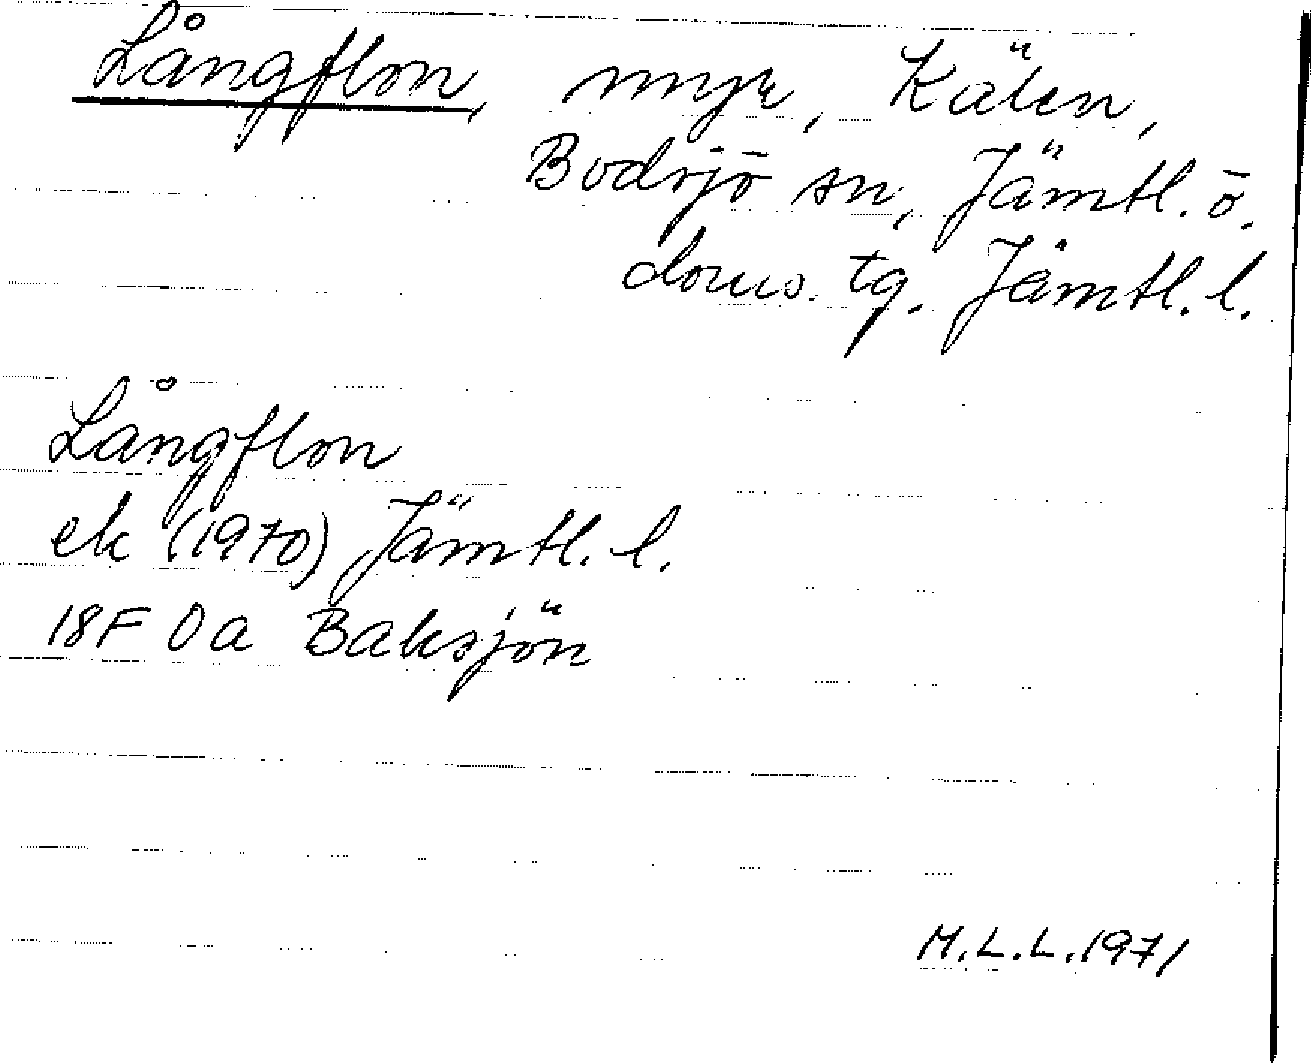 Långflon, myr, Kälen,
Bodsjö sn, Jämtl. ö.
doms. tg. Jämtl. l.
Långflon
ek (1970) Jämtl. l.
18F 0a Baksjön
M.L.L. 1971